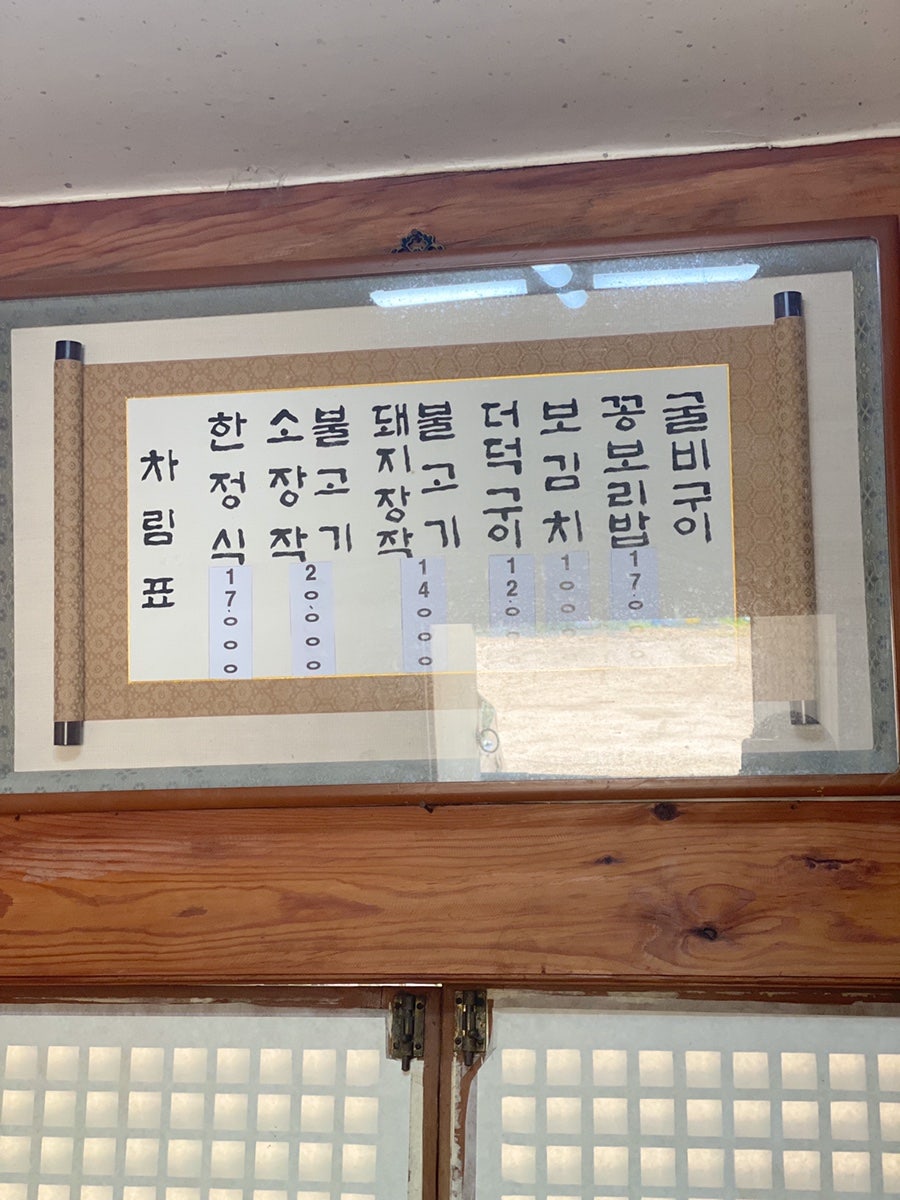 차림표
한정식 17.000
소장작불고기 20.000
돼지장작불고기 14000
더덕구이 12.00
보김치 1000
꽁보리밥 17.0
굴비구이